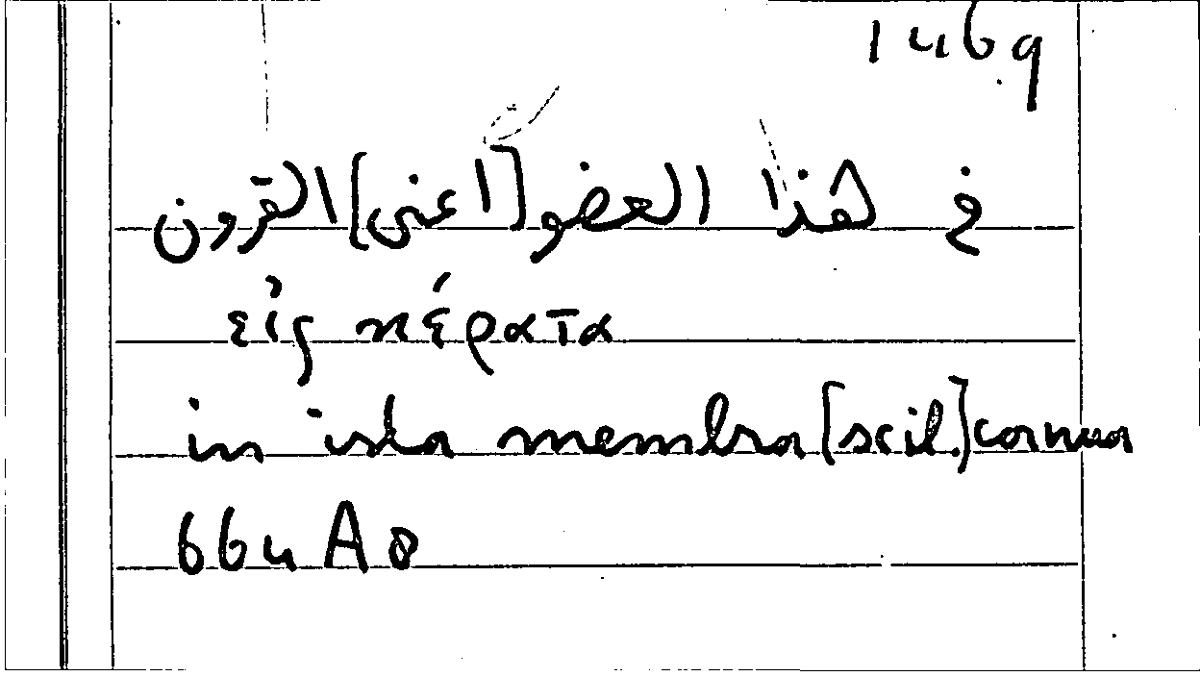 1469
في هذا العضو [اعنى] القرون
εἰς κέρατα
in ista membra [scil.] cornua
664 A 8